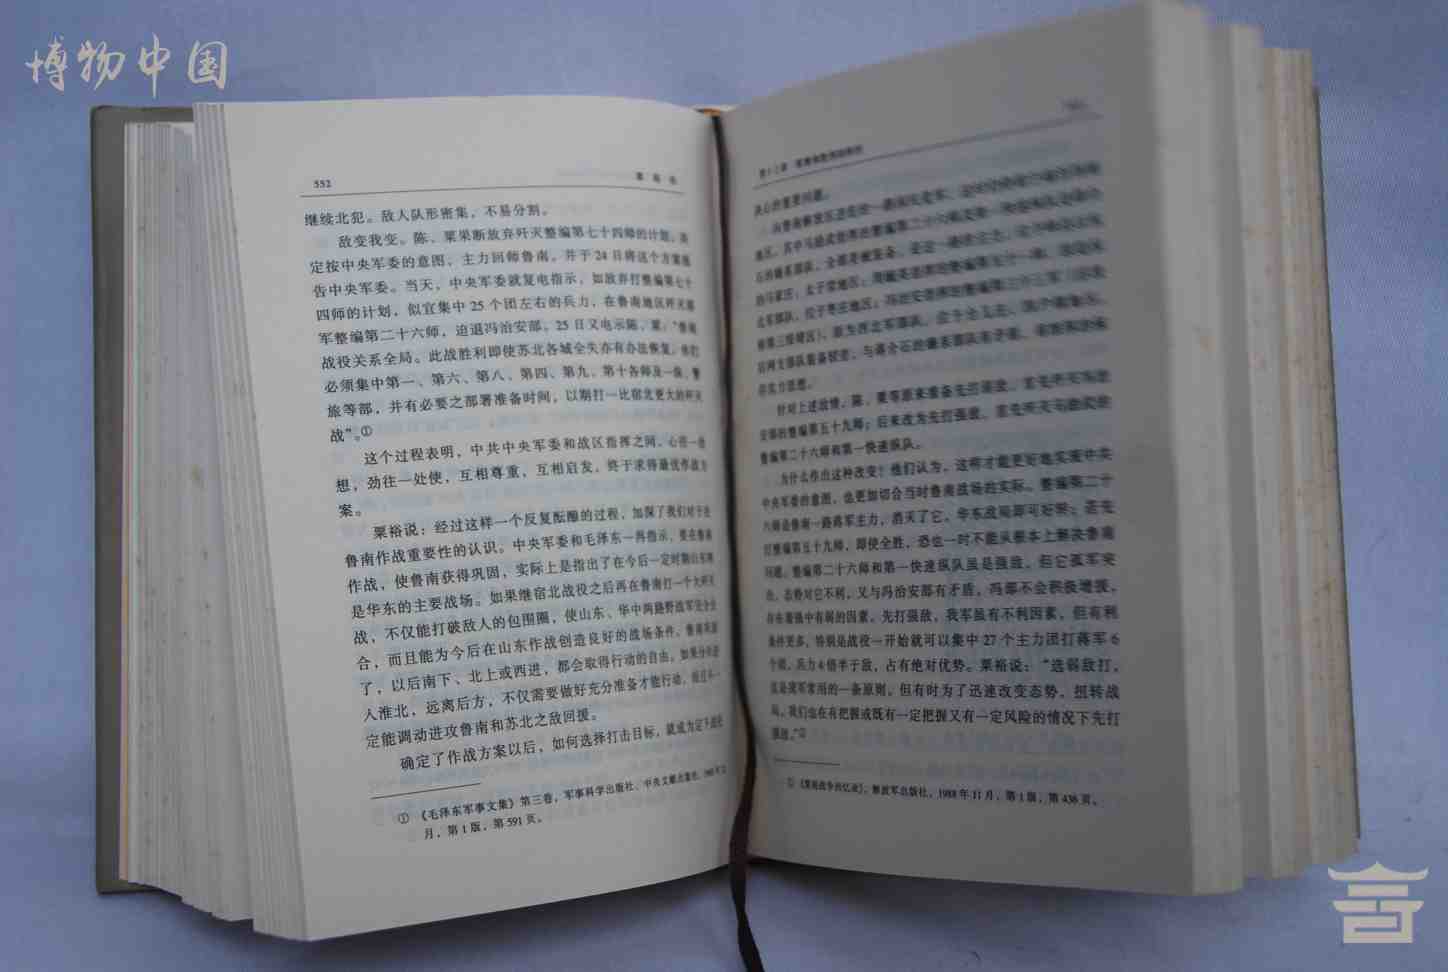 博物中国
552
继续北犯。敌人队形密集，不易分割。
敌变我变。陈、粟果断放弃歼灭整编第七十四师的计划，决
定按中央军委的意图，主力回师鲁南。并于24日将这个方案报
告中央军委。当天，中央军委就复电指示，如放弃打整编第七十
四师的计划，似宜集中25个团左右的兵力，在鲁南地区歼灭蒋
军整编第二十六师，迫退冯治安部。25日又电示陈、粟："鲁南
战役关系全局。此战胜利即使苏北各城全失亦有办法恢复。你们
必须集中第一、第六、第八、第四、第九、第十各师及一纵、警
旅等部，并有必要之部署准备时间，以期打一比宿北更大的歼灭
战"。①
这个过程表明，中共中央军委和战区指挥之间，心往一处
想，劲往一处使，互相尊重，互相启发，终于求得最优作战方
案。
粟裕说：经过这样一个反复酝酿的过程，加深了我们对于在
鲁南作战重要性的认识。中央军委和毛泽东一再指示，要在鲁南
作战，使鲁南获得巩固，实际上是指出了在今后一定时期山东将
是华东的主要战场。如果继宿北战役之后再在鲁南打一个大歼灭
战，不仅能打破敌人的包围圈，使山东、华中两路野战军完全会
合，而且能为今后在山东作战创造良好的战场条件。鲁南巩固
了，以后南下、北上或西进，都会取得行动的自由。如果分兵进
入淮北，远离后方，不仅需要做好充分准备才能行动，而且不一
定能调动进攻鲁南和苏北之敌回援。
确定了作战方案以后，如何选择打击目标，就成为定下战役
① 《毛泽东军事文集》第三卷，军事科学出版社、中央文献出版社，1993年12
月，第1版，第591页。
决心的重要问题。
针对上述敌情，陈、粟等原来准备先打弱敌，首先歼灭冯治
安部的整编第五十九师；后来改为先打强敌，首先歼灭马励武的
整编第二十六师和第一快速纵队。
为什么作出这种改变？他们认为，这样才能更好地实现中共
中央军委的意图，也更加切合当时鲁南战场的实际。整编第二十
六师是鲁南一路蒋军主力，消灭了它，华东战局即可好转；若先
打整编第五十九师，即使全胜，恐也一时不能从根本上解决鲁南
问题。整编第二十六师和第一快速纵队虽是强敌，但它孤军突
出，态势对它不利，又与冯治安部有矛盾，冯部不会积极增援，
存在着强中有弱的因素。先打强敌，我军虽有不利因素，但有利
条件更多，特别是战役一开始就可以集中27个主力团打蒋军6
个团，兵力4倍半于敌，占有绝对优势。粟裕说："选弱敌打，
这是我军常用的一条原则，但有时为了迅速改变态势，扭转战
局，我们也在有把握或既有一定把握又有一定风险的情况下先打
强敌。"①
① 《粟裕战争回忆录》，解放军出版社，1988年11月，第1版，第436页。